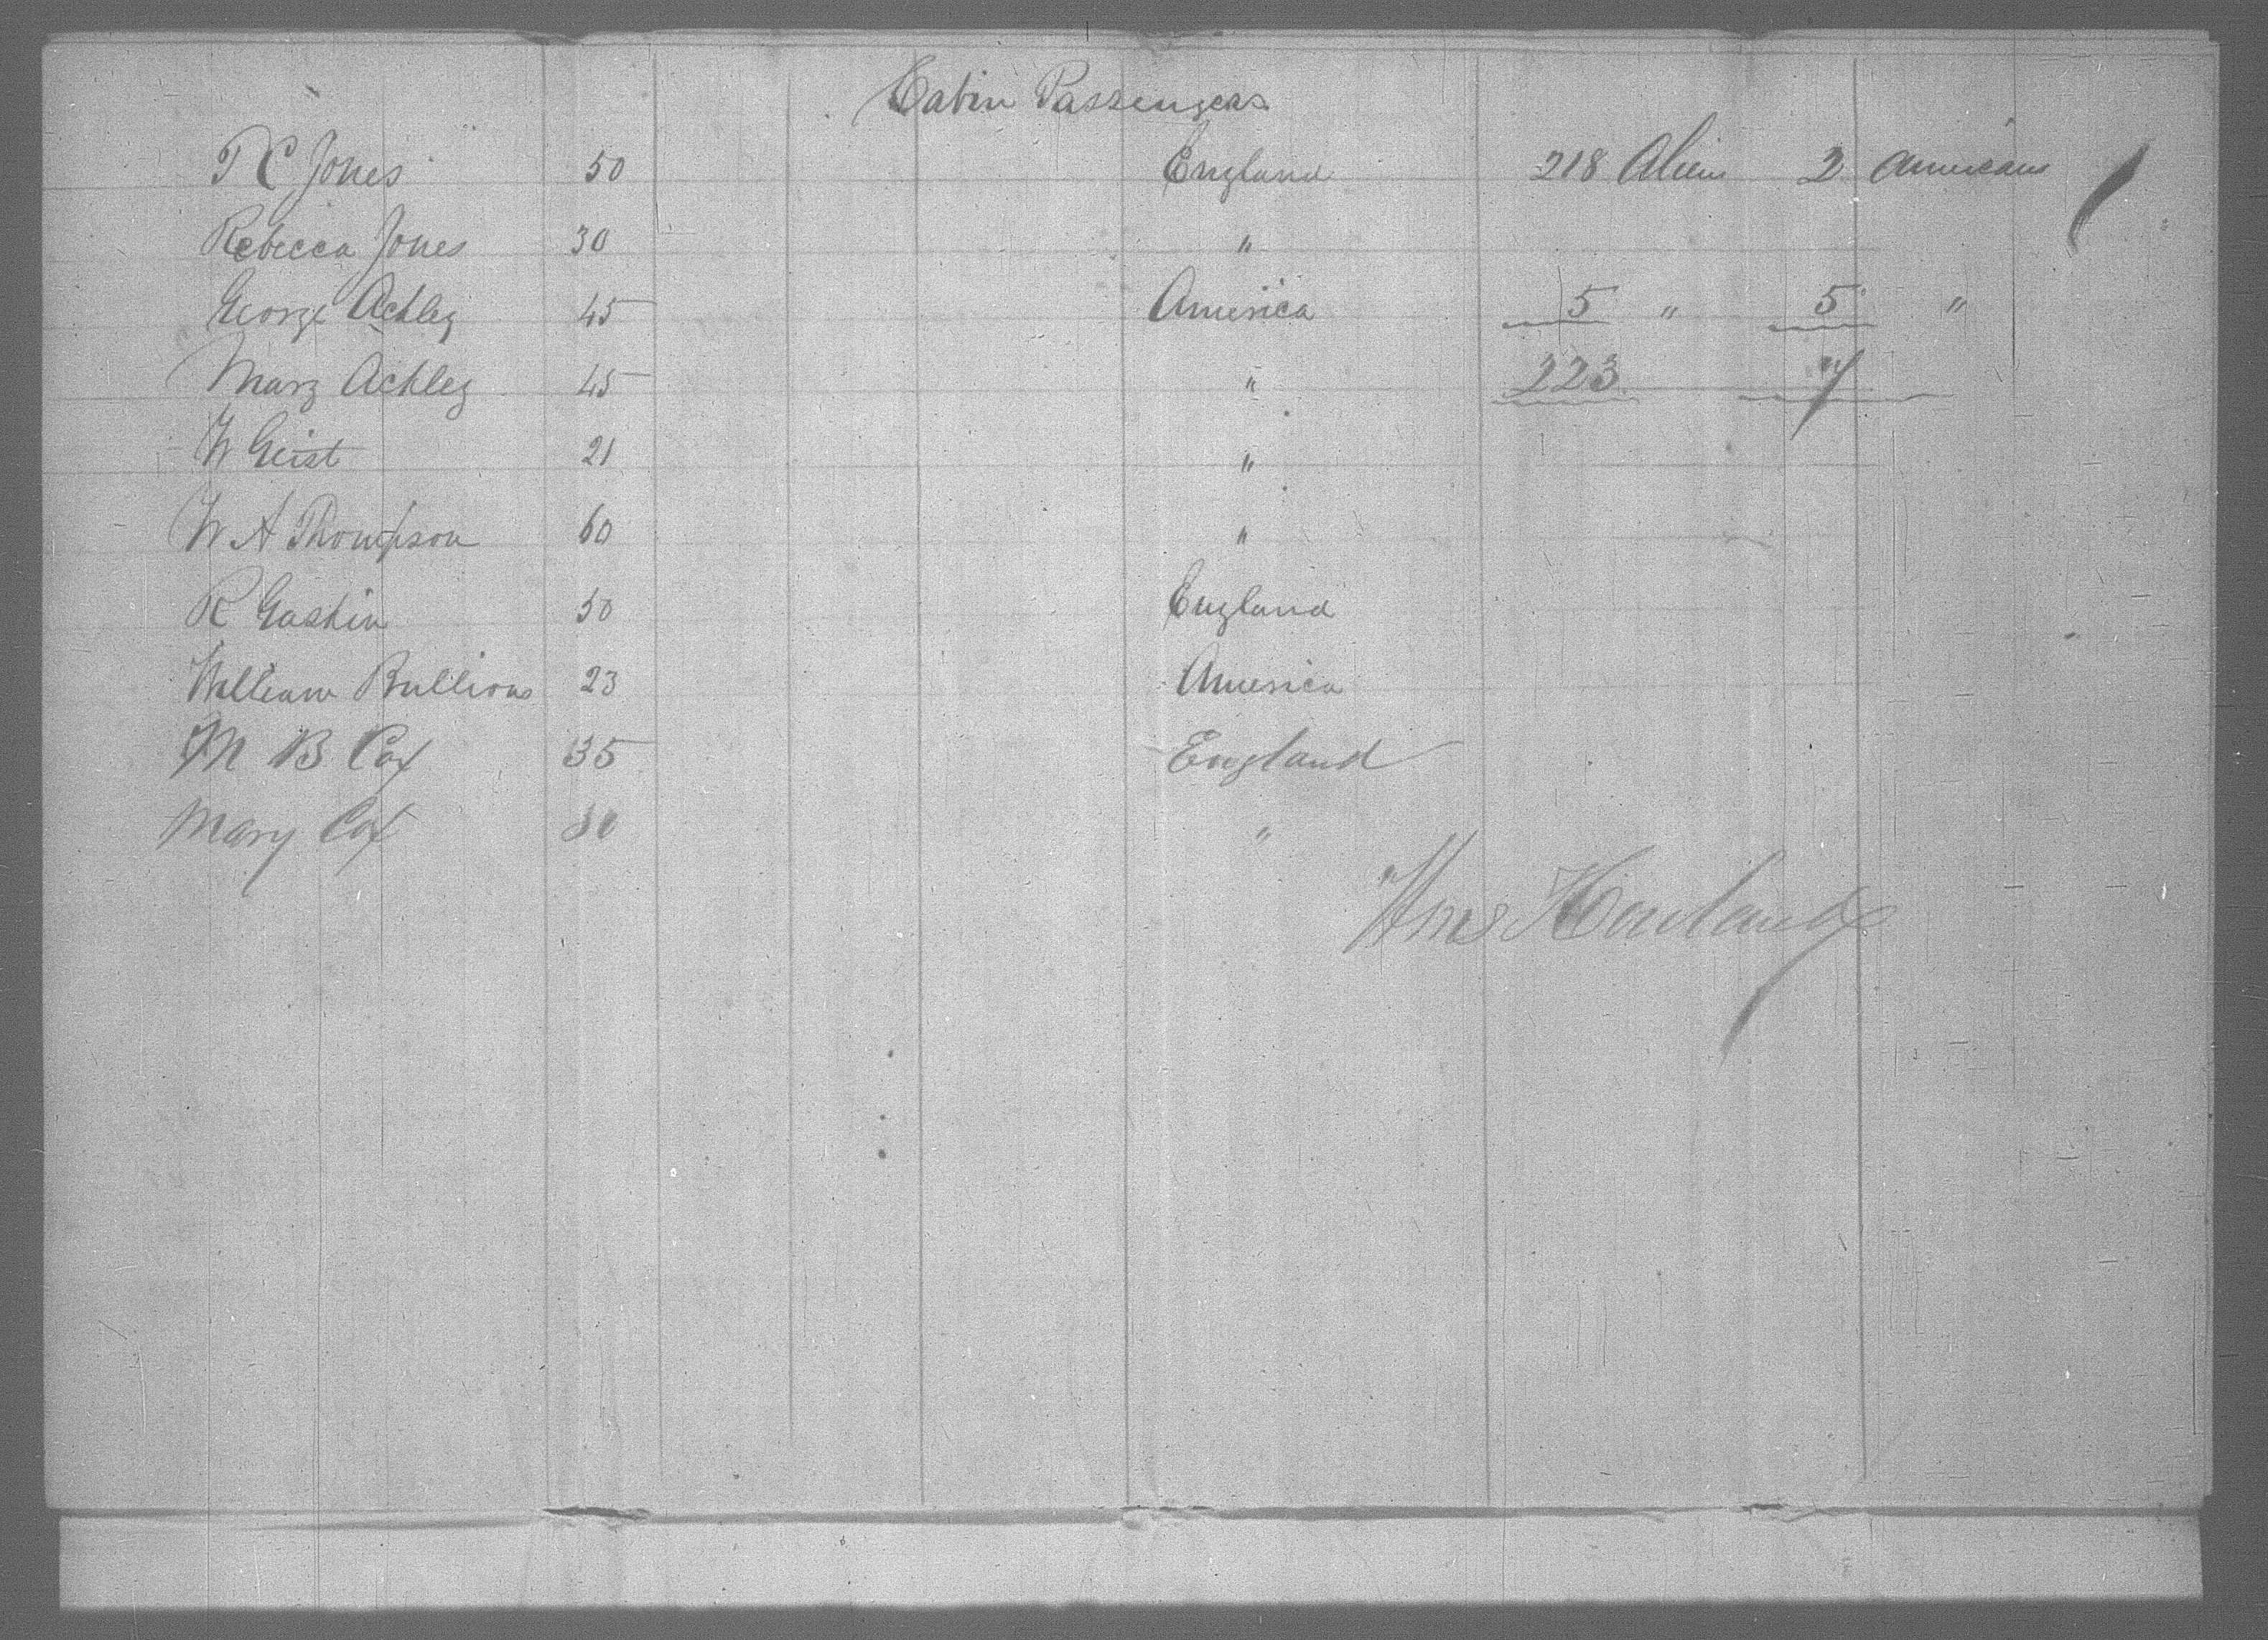 Cabin Passengers
T C Jones 50 England 218 Aliens 2 Americans
Rebecca Jones 30 "
George Ackley 45 America 5 " 5 "
Mary Ackley 45 " 223 7
W Geist 21 "
W A Thompson 60 "
R Gaskin 50 England
William Bullions 23 America
M B Cox 35 England
Mary Cox 30 "